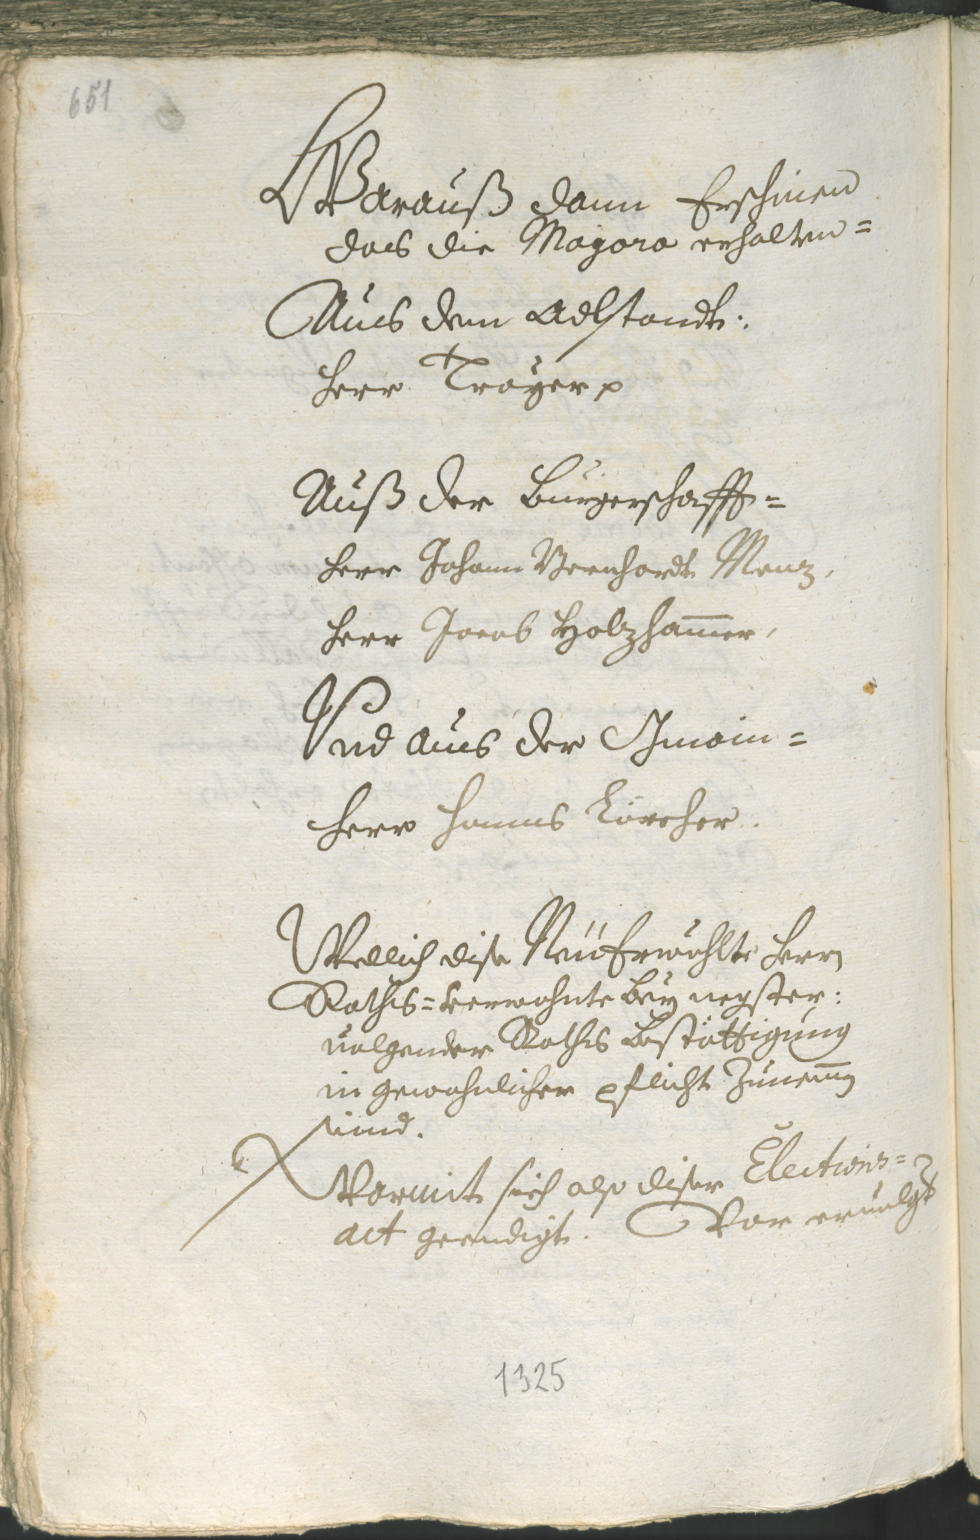 651
Warauß dann Erschinen
das die Majora erhalten=
Aus dem Adlstandt:
Herr Troyer p
Auß der Burgerschafft=
Herr Johann Bernhardt Menz,
Herr Jacob Holzham̄er,
Vnd aus der Gmain=
Herr Hanns Kircher.
Wellich dise Neu Erwöhlte Herrn
Raths=verwohnte bey negster:
uolgender Raths Bestättigung
in gewohnlicher pflicht Zunem̄en
seind.
Warmit sich also diser Elections=
act geendigt. War ervolgt
1325